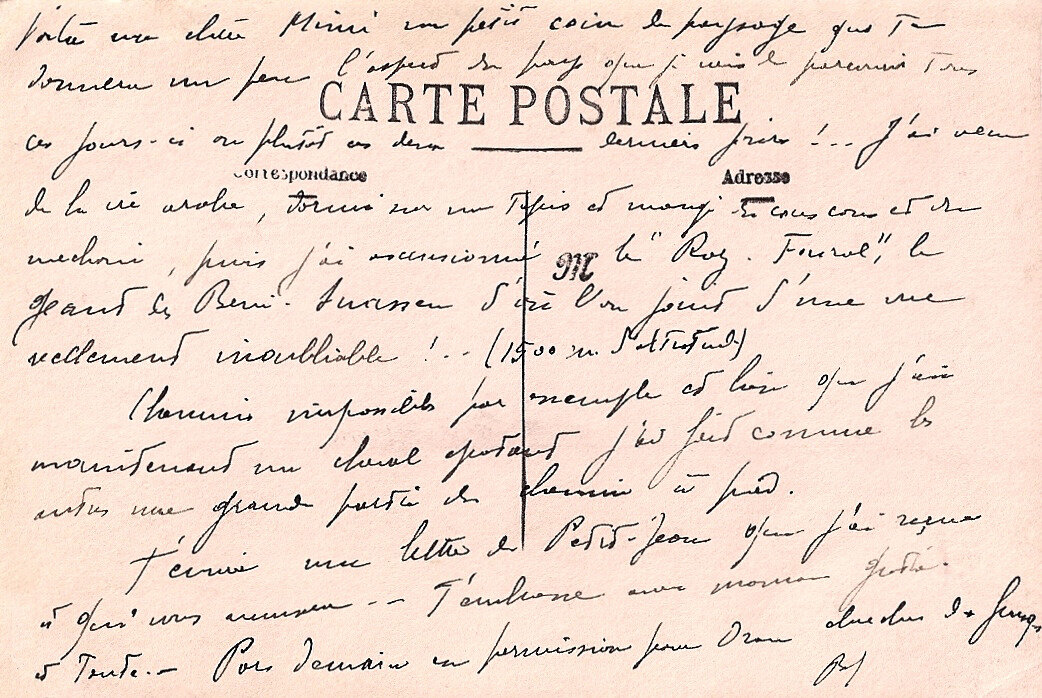 Voilà ma chère Mimi un petit coin de paysage qui te
donnera un peu l'aspect du pays que je viens de parcourir tous
CARTE POSTALE
ces jours-ci ou plutôt ces deux derniers jours !... J'ai vécu
Correspondance
Adresse
de la vie arabe, dormi sur un tapis et mangé du couscous et du
mechoui, puis j'ai excursionné le "Raz-Foural", le
M
géant des Beni-Snassen d'où l'on jouit d'une vue
reellement inoubliable !.. (1500 m. d'altitude)
Chemins impossibles par exemple et bien que j'aie
maintenant un cheval épatant j'ai fait comme les
autres une grande partie du chemin à pied.
T'envoie une lettre de Petit-Jean que j'ai reçue
et qui vous amusera -- T'embrasse avec maman
et Tante.- Pars demain en permission pour Oran chercher des